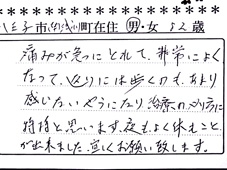 八王子市 町在住 男・女 52歳
痛みが急にとれて、非常によく
なって、 には歩くのも、あまり
感じないようになり治療の 方に
特特と思います。夜も、よく休むこと
が出来ました。宜しくお願い致します。